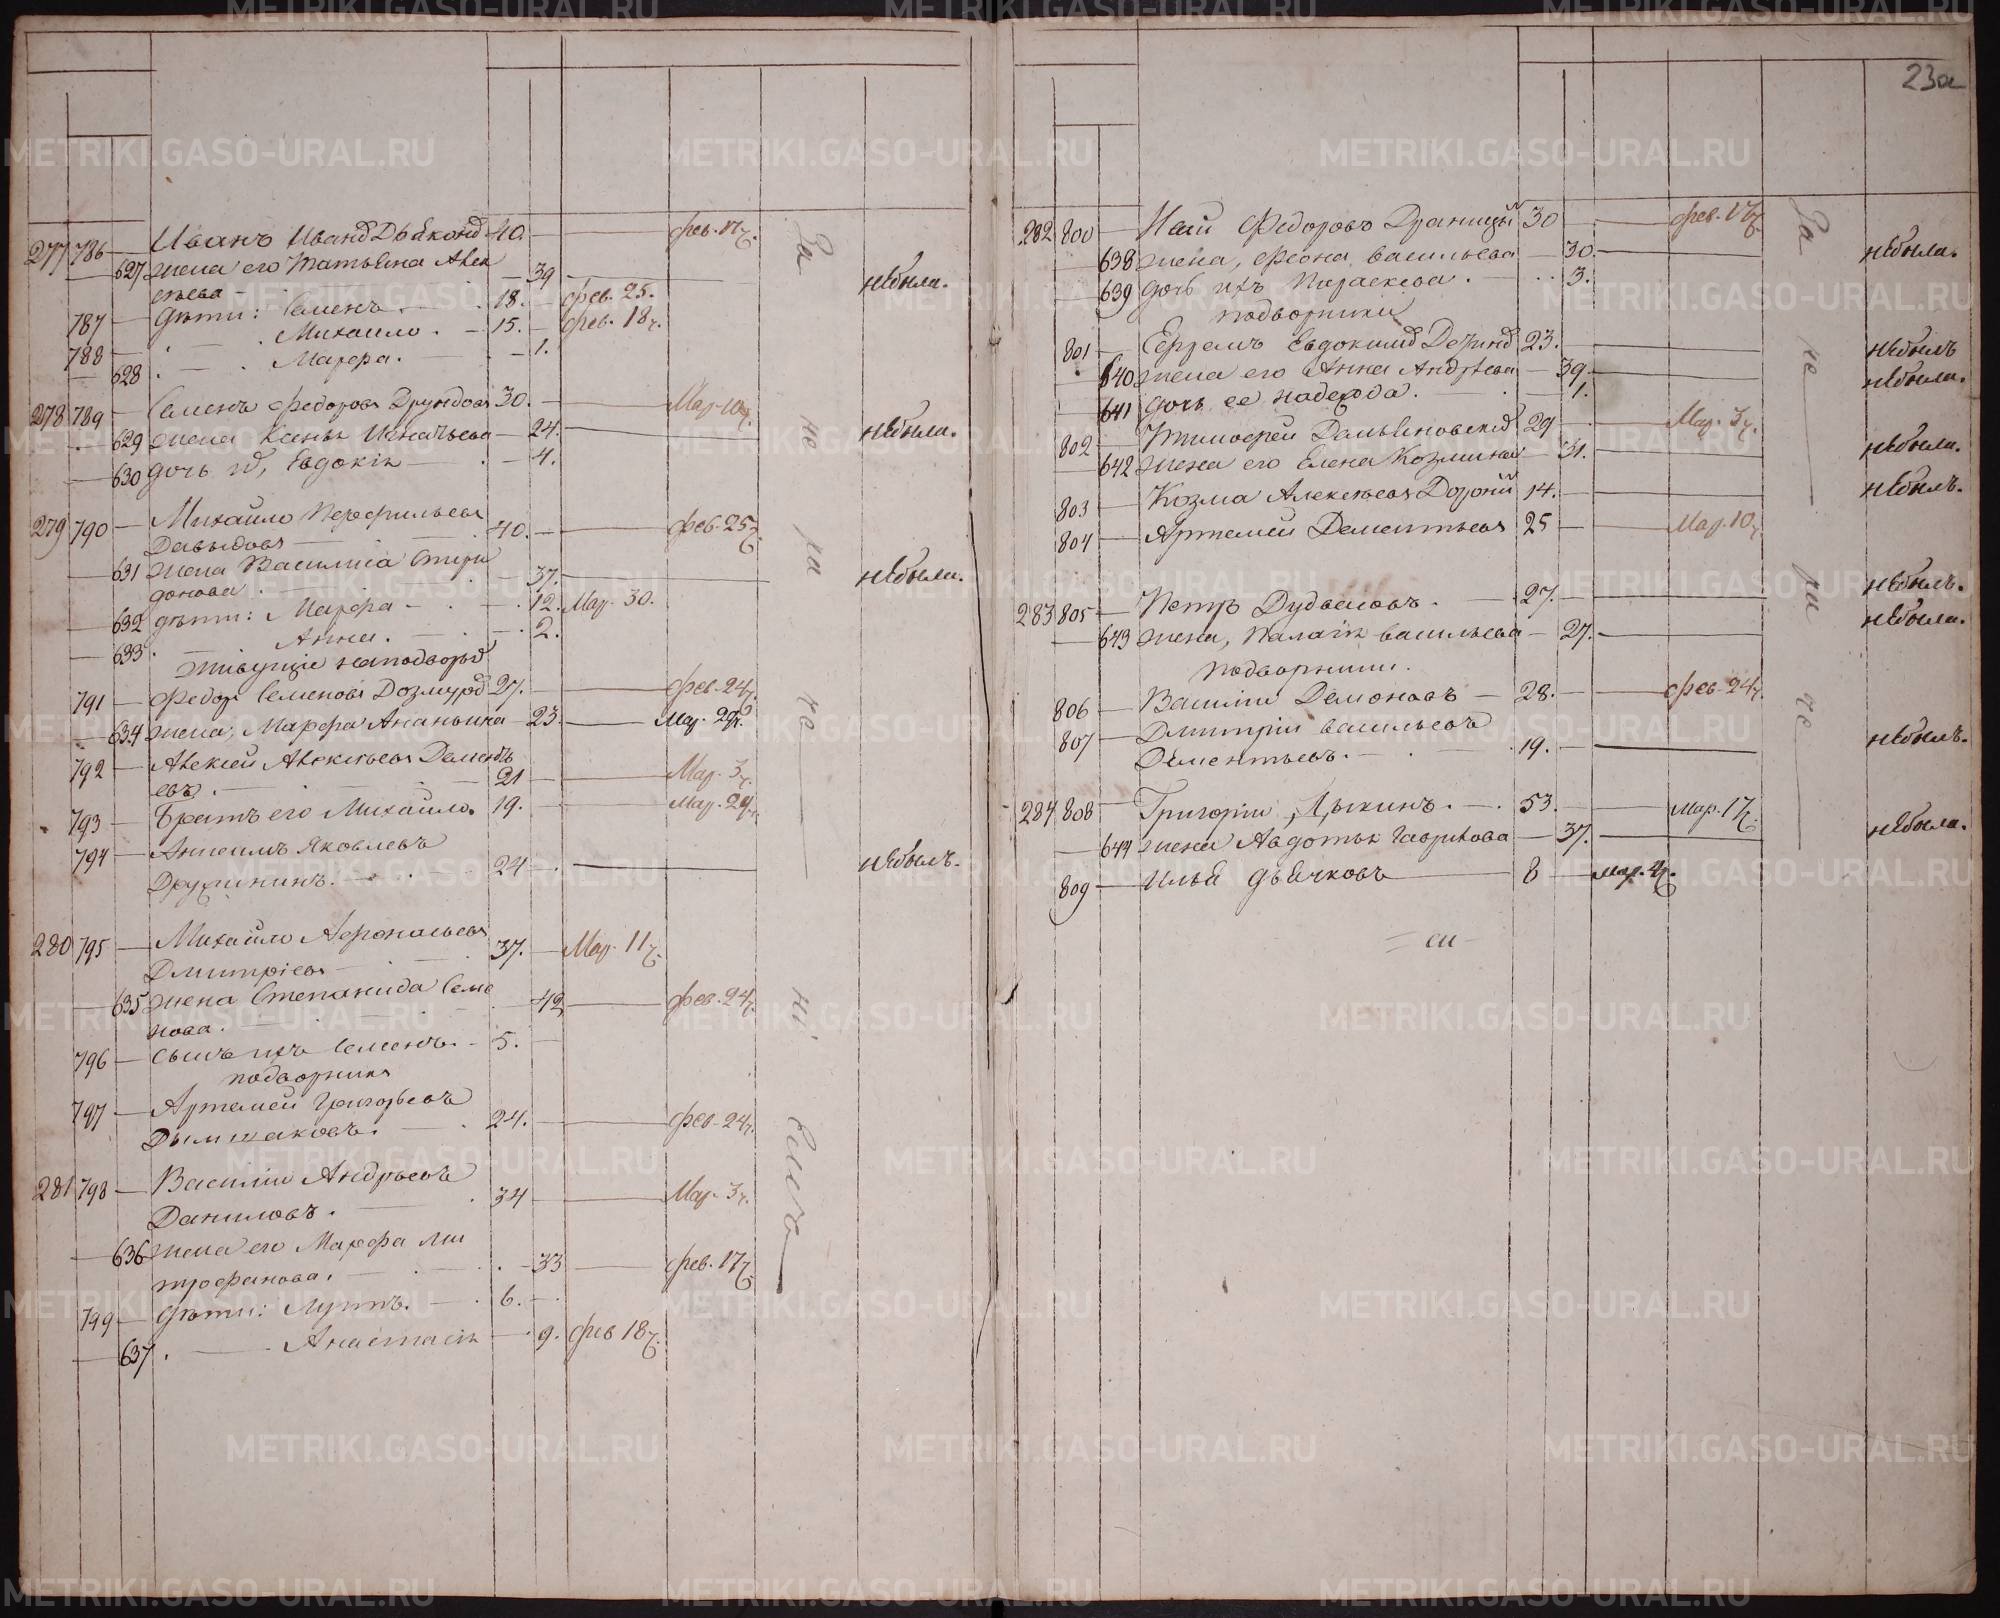 23а
277 786 — Иванъ Ивановъ Дьяконовъ 40. — фев. 17ч.
627 жена его Татьяна Алек 39 — небыла.
сѣева —
787 — дѣти: Семенъ 18. — фев. 25.
788 — Михаило. 15. — фев. 18ч.
628 Марфа. — 1.
278 789 — Семенъ Федоровъ 30. — Мар. 10ч.
629 жена Ксенья Игнатьева — 24. — небыла.
630 дочь Евдокія — 4.
279 790 — Михаило Перфильевъ
Давыдовъ — 40. — фев. 25ч.
631 жена Василиса Спири
донова. 37. — небыла.
632 дѣти: Марфа — 12. Мар. 30.
633 Анна. — 2.
живущіе наподворьѣ
791 — Федоръ Семеновъ 27. — фев. 24ч.
634 жена, Марфа Ананьина — 23. — Мар. 29ч.
792 — Алексей Алексѣевъ Демент
евъ. — 21 — Мар. 3ч.
793 — Братъ его Михаило. 19. — Мар. 29ч.
794 — Анисимъ Яковлевъ
Дружининъ. — 24 — небылъ.
280 795 — Михаило Афонасьевъ
Дмитріевъ — 37. — Мар. 11ч.
635 жена Степанида Семе
нова. — 42 — фев. 24ч.
796 — Сынъ ихъ Семенъ. — 5. —
подворникъ
797 — Артемей Григорьевъ
Дымшаковъ. — 24. — фев. 24ч.
281 798 — Василіи Андрѣевъ
Даниловъ. — 34 — Мар. 3ч.
636 жена его Марфа Ми
трофанова. — 33 — фев. 17ч.
799 — дѣти: Луппъ. — 6. —
637. — Анастасія — 9. фев 18ч.
За не ра че ні Емъ
282 800 — Федоровъ 30 — фев. 17ч.
638 жена, Феона васильева — 30. — небыла.
639 дочь ихъ Параскева. 3.
подворники
801 — Ефремъ Евдокимовъ 23. — небылъ
640 жена его Анна Андрѣева — 39. — небыла.
641 дочь ее надежда. — 1.
802 — Тимофей Демьяновскій 29 — Мар. 3ч.
642 жена его Елена Козмина — 31. — небыла.
803 — Козма Алексѣевъ 14. — небылъ.
804 — Артемей Дементьевъ 25 — Мар. 10ч
283 805 — Петръ 27. — небылъ.
643 жена, Палагія васильева — 27. — небыла.
подворники.
806 — Василіи Демоновъ — 28. — фев. 24ч.
807 — Дмитріи васильевъ
Дементьевъ. — 19. — небылъ.
284 808 — Григоріи Лыкинъ. — 53. — мар. 17ч.
644 жена Авдотья Гаврилова — 37. — небыла.
809 — Илья дьячковъ — 8 — мар. 4ч.
За не ра че
METRIKI.GASO-URAL.RU